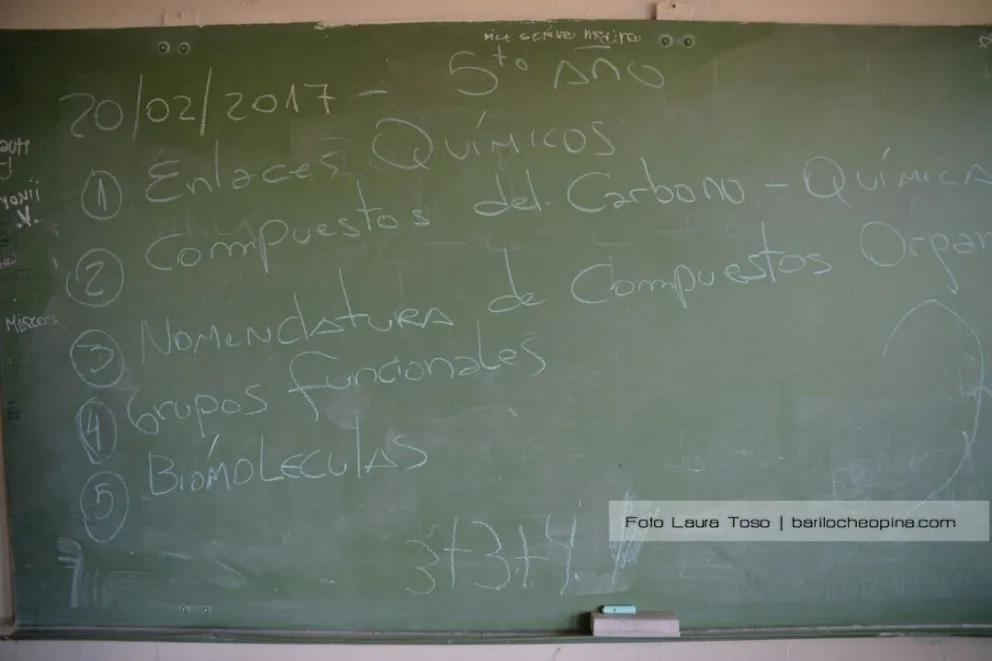 20/02/2017 - 5to AÑO
① Enlaces QUÍMICOS
② Compuestos del Carbono - QUÍMICA
③ NOMENCLATURA de Compuestos Organ
④ Grupos funcionales
⑤ BIOMOLECULAS
3+3+4
Foto Laura Toso | barilocheopina.com